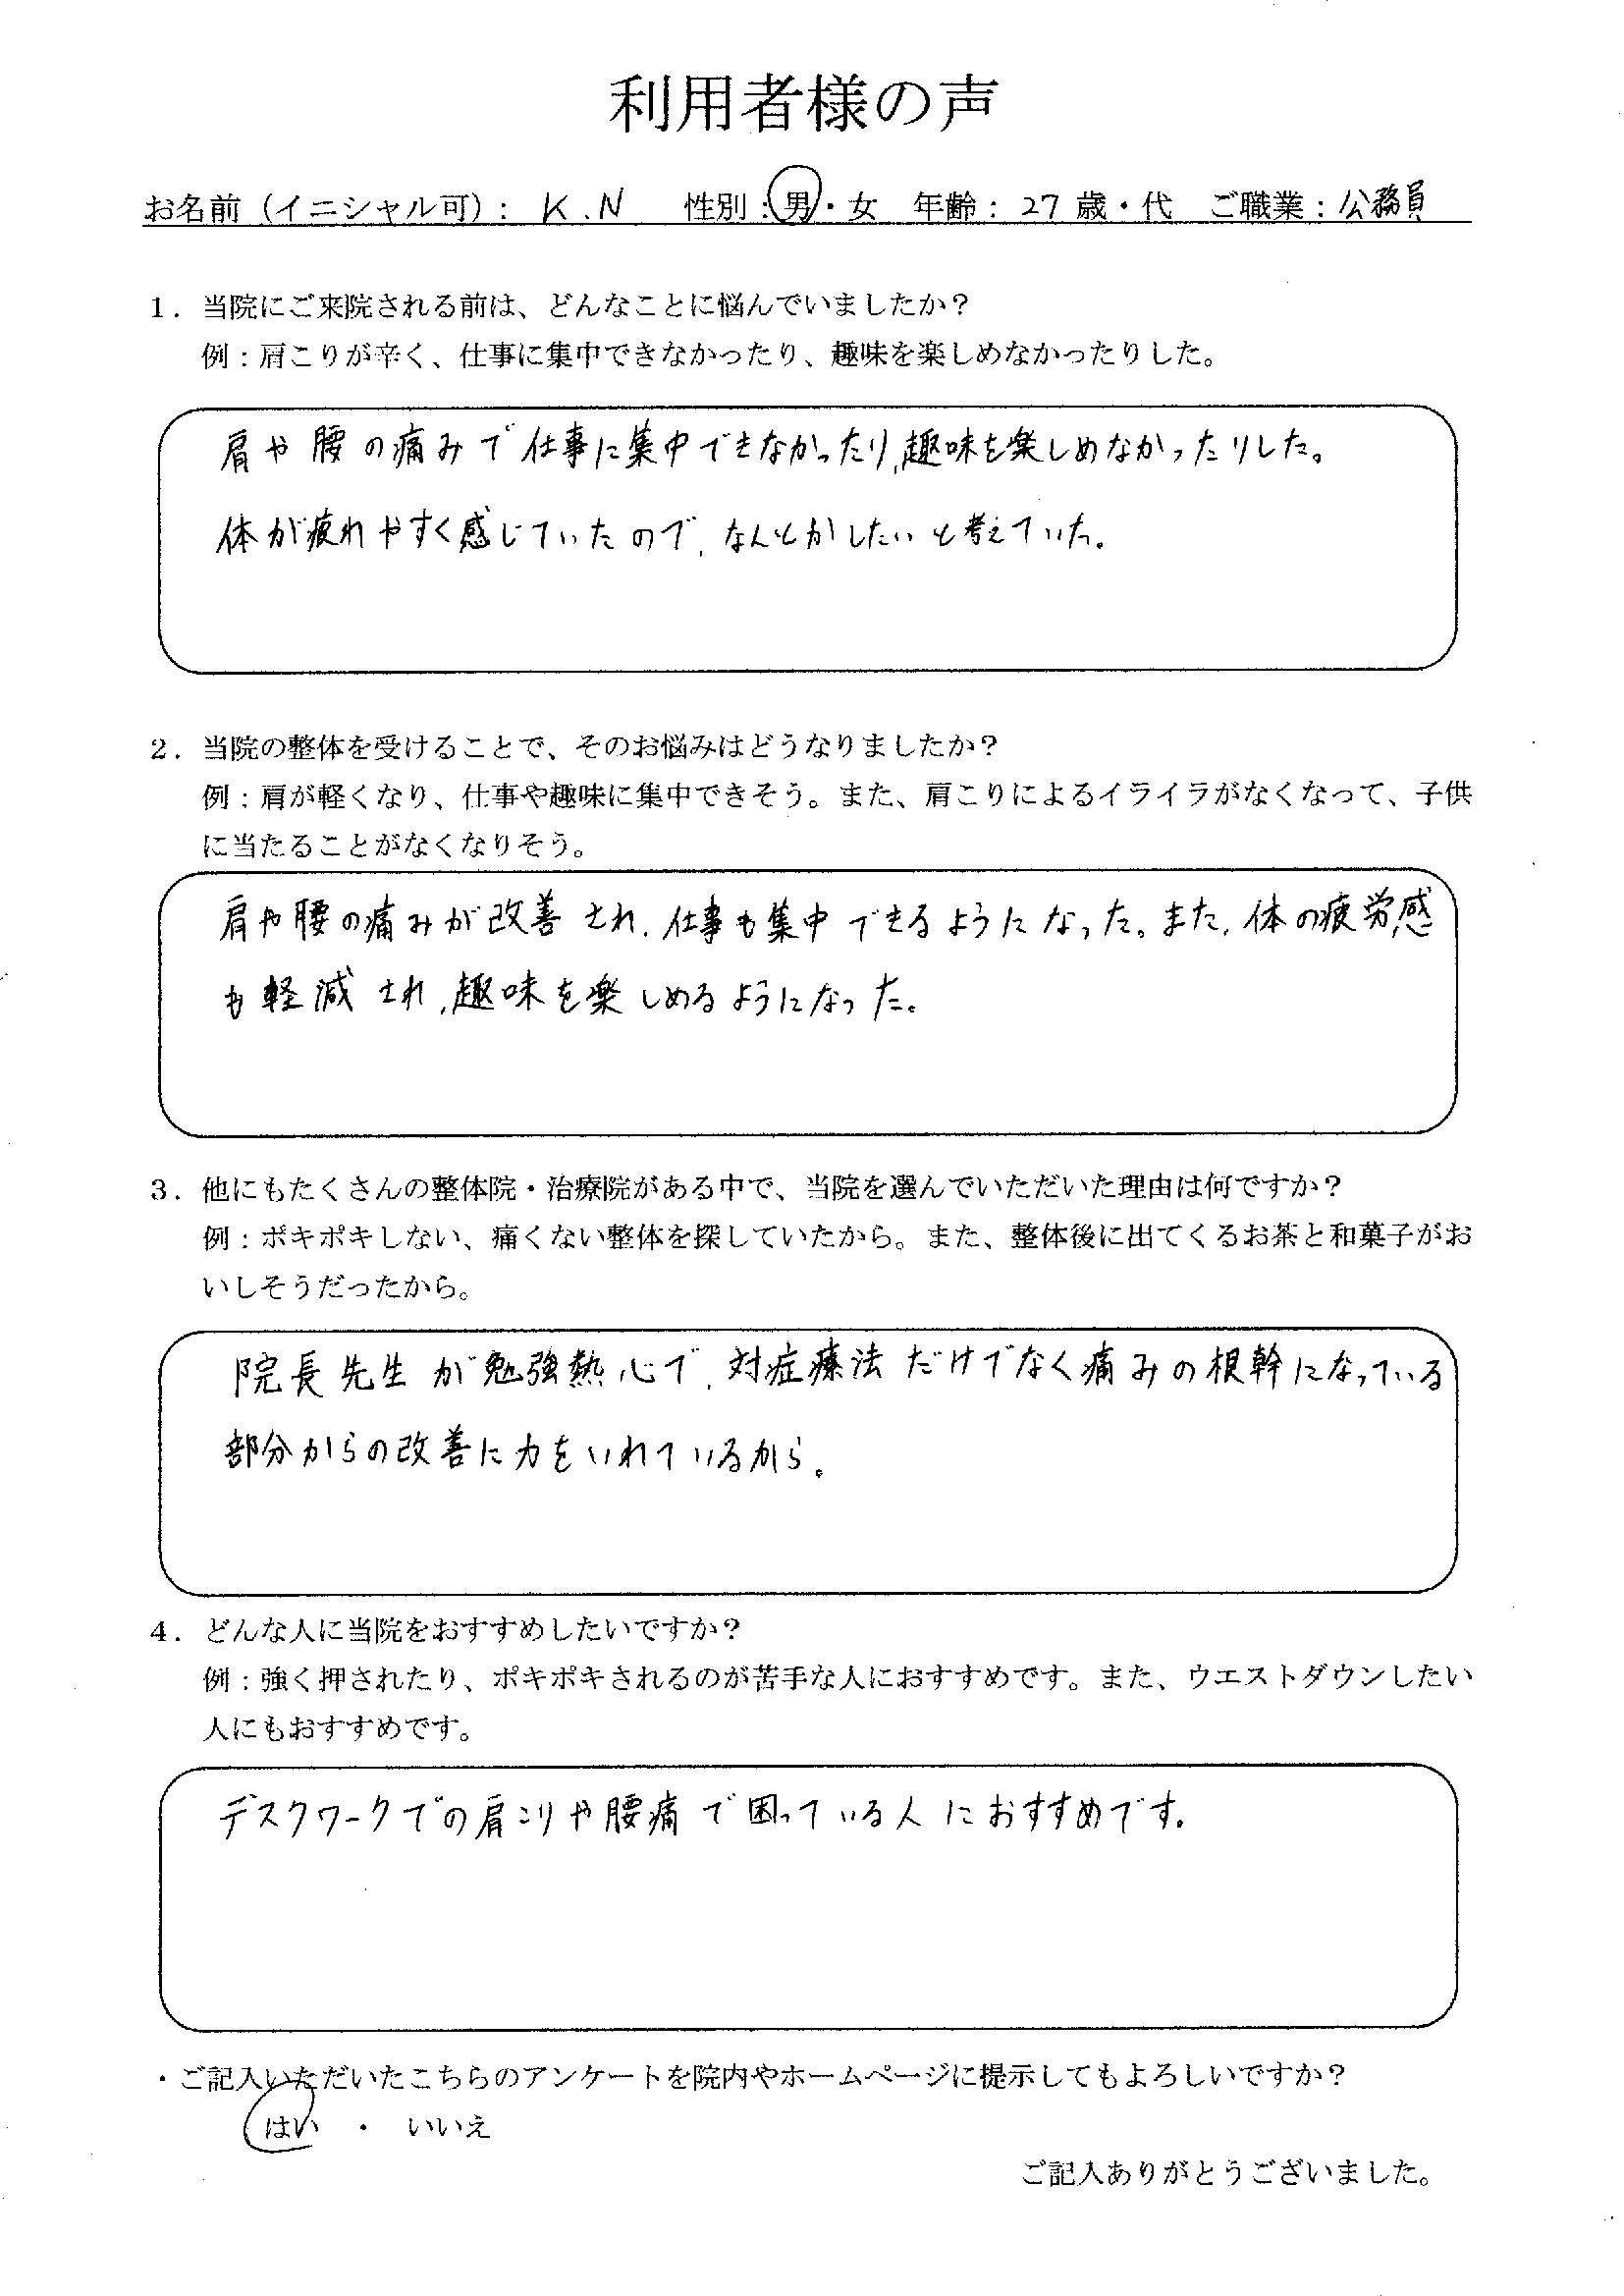 利用者様の声
お名前（イニシャル可）： K.N 性別：男・女 年齢： 27 歳・代 ご職業：公務員
1．当院にご来院される前は、どんなことに悩んでいましたか？
例：肩こりが辛く、仕事に集中できなかったり、趣味を楽しめなかったりした。
肩や腰の痛みで仕事に集中できなかったり、趣味を楽しめなかったりした。
体が疲れやすく感じていたので、なんとかしたいと考えていた。
2．当院の整体を受けることで、そのお悩みはどうなりましたか？
例：肩が軽くなり、仕事や趣味に集中できそう。また、肩こりによるイライラがなくなって、子供
に当たることがなくなりそう。
肩や腰の痛みが改善され、仕事も集中できるようになった。また、体の疲労感
も軽減され、趣味を楽しめるようになった。
3．他にもたくさんの整体院・治療院がある中で、当院を選んでいただいた理由は何ですか？
例：ボキボキしない、痛くない整体を探していたから。また、整体後に出てくるお茶と和菓子がお
いしそうだったから。
院長先生が勉強熱心で、対症療法だけでなく痛みの根幹になっている
部分からの改善に力をいれているから。
4．どんな人に当院をおすすめしたいですか？
例：強く押されたり、ボキボキされるのが苦手な人におすすめです。また、ウエストダウンしたい
人にもおすすめです。
デスクワークでの肩こりや腰痛で困っている人におすすめです。
・ご記入いただいたこちらのアンケートを院内やホームページに提示してもよろしいですか？
はい ・ いいえ
ご記入ありがとうございました。